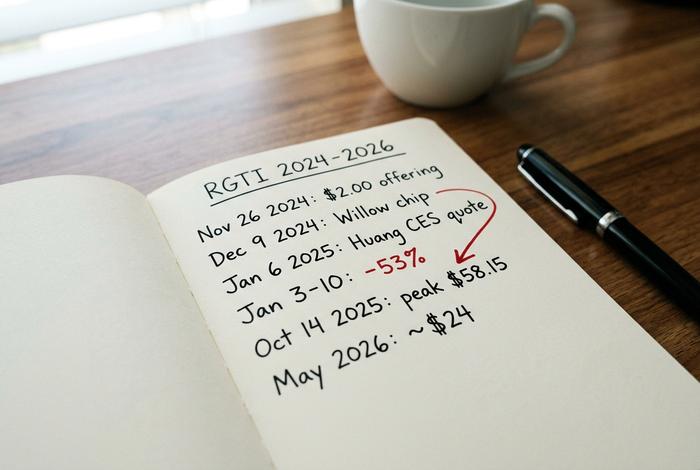 RGTI 2024-2026
Nov 26 2024: $2.00 offering
Dec 9 2024: Willow chip
Jan 6 2025: Huang CES quote
Jan 3-10: -53%
Oct 14 2025: peak $58.15
May 2026: ~$24